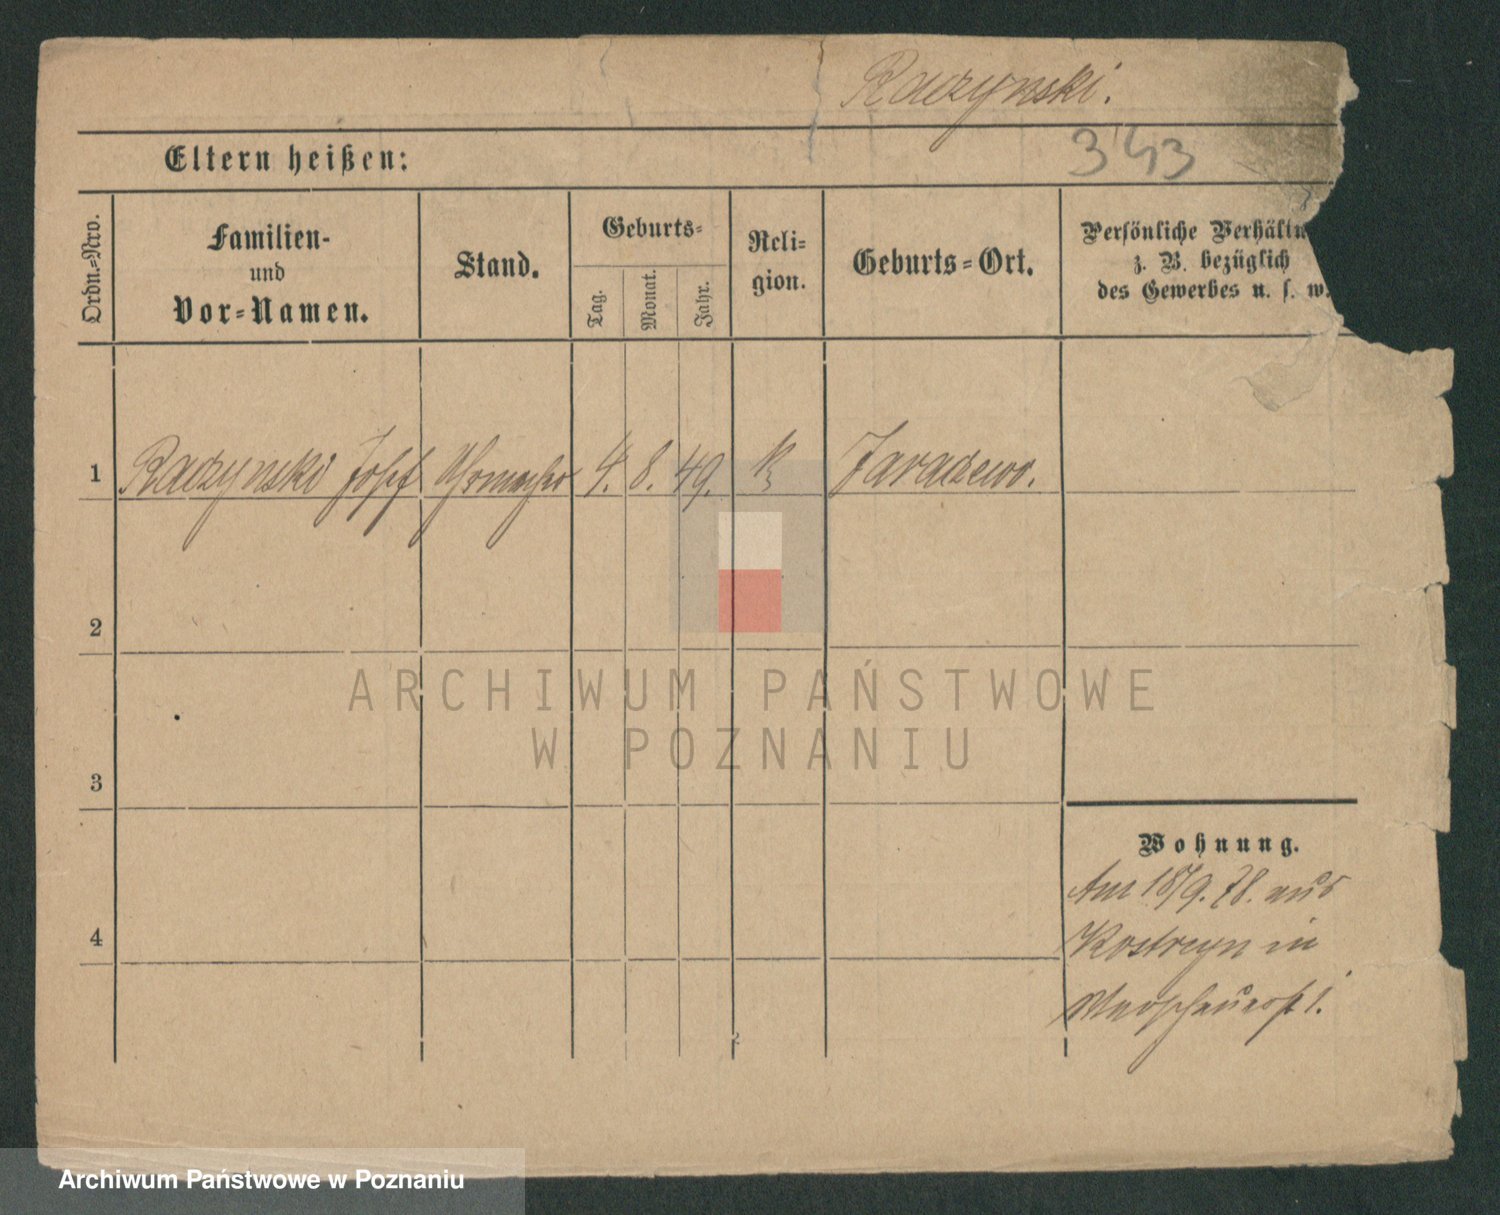 Raczynski.
343
Eltern heißen:
Ordn.=Nro.
Familien-
und
Vor=Namen.
Stand.
Geburts=
Tag.
Monat.
Jahr.
Reli=
gion.
Geburts=Ort.
Persönliche Verhältn
z. B. bezüglich
des Gewerbes u. s. w.
1 Raczynski Josef Uhrmacher 4. 8. 49. k Jaraczewo.
2
3
4
Wohnung.
Am 18/9. 78. aus
Kostrzyn in
ARCHIWUM PAŃSTWOWE
W POZNANIU
Archiwum Państwowe w Poznaniu